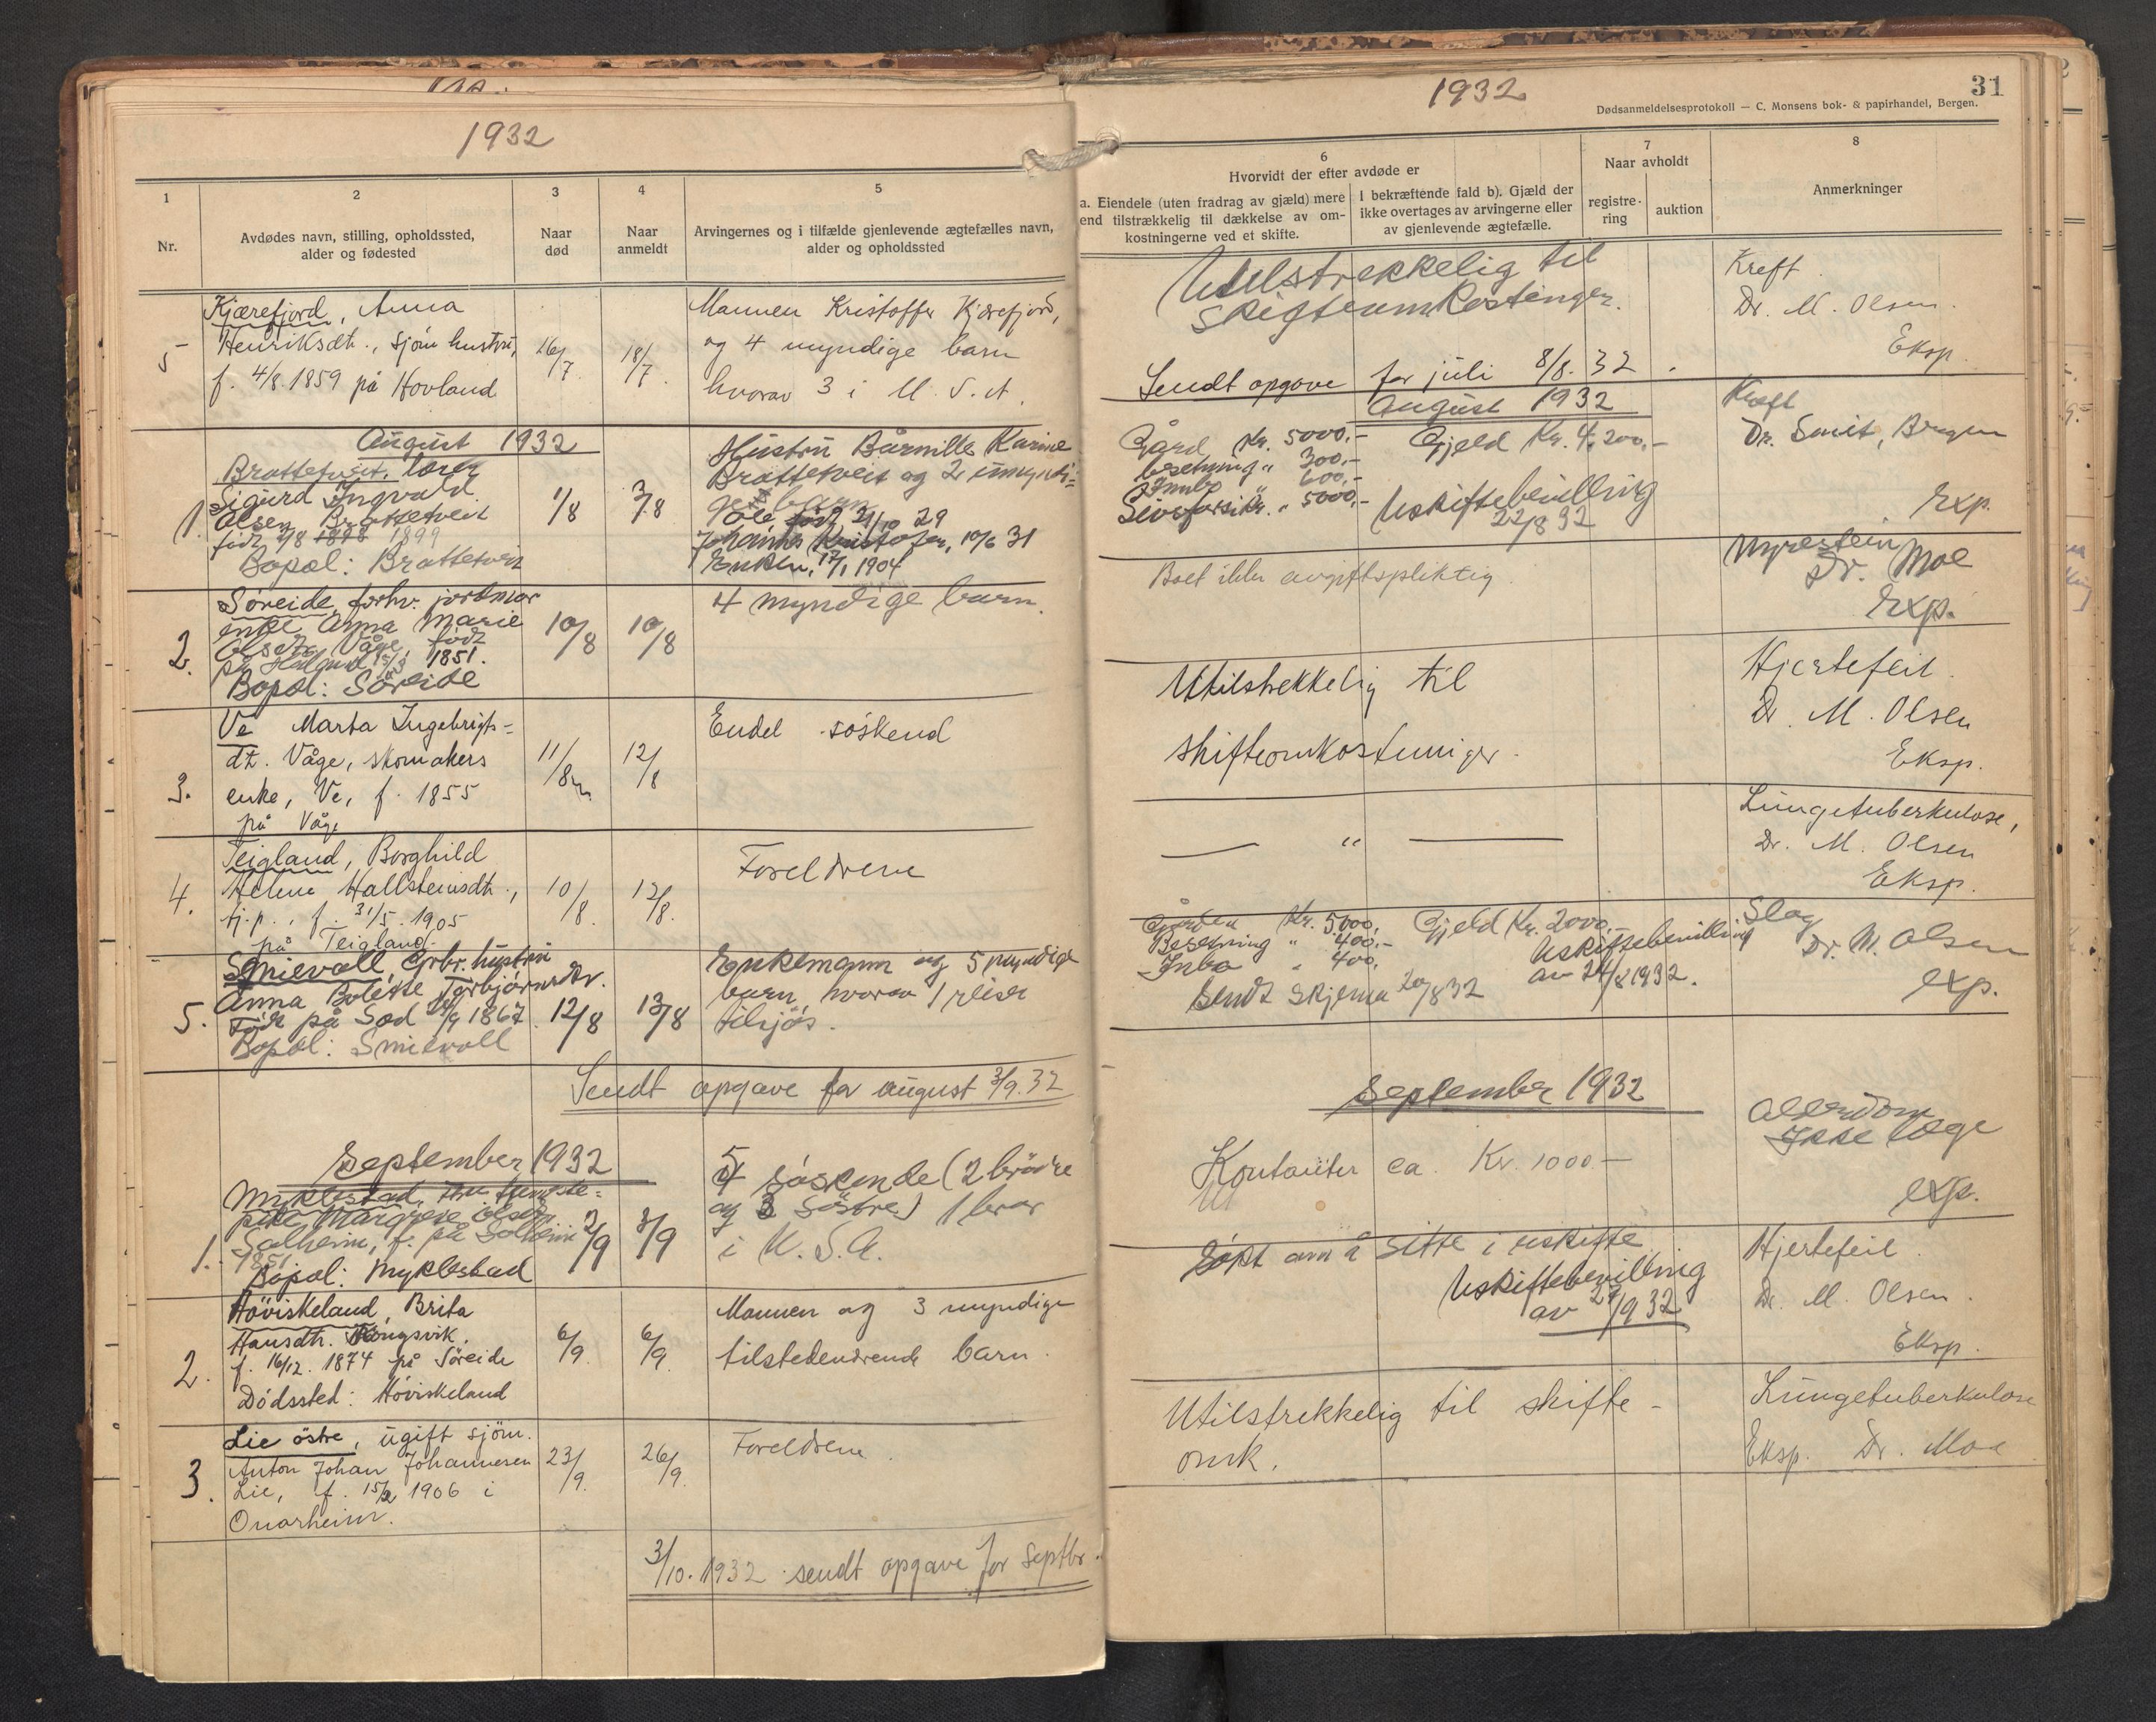 1932
1
2
3
4
5
Nr.
Avdødes navn, stilling, opholdssted,
alder og fødested
Naar
død
Naar
anmeldt
Arvingernes og i tilfælde gjenlevende ægtefælles navn,
alder og opholdssted
5
Kjærefjord, Anna
Henriksdtr., sjøm. hustru,
f. 4/8 1859 på Hovland
16/7
18/7
Mannen Kristoffer Kjærefjord,
og 4 myndige barn
hvorav 3 i U.S.A.
August 1932
1.
Brattetveit, lærer
Sigurd Ingvald
Olsen Brattetveit
født 2/8 1898 1899
Bopæl: Brattetveit
1/8
3/8
Hustru Karine
Brattetveit og 2 umyndi-
ge barn
Ole, født 21/10 29
Johannes Kristofer, 10/6 31
Enken, 17/1 1904
2.
Søreide, forhv. jordmor
enke Anna Marie
Olsdtr. Våge, født
på 1851.
Bopæl: Søreide
10/8
10/8
4 myndige barn.
3.
Ve Marta Ingebrigts-
dt. Våge, skomakers
enke, Ve, f. 1855
på Våge
11/8
12/8
Endel søskend
4.
Teigland, Borghild
Helene Hallsteinsdtr.,
tj.p., f. 31/5 1905
på Teigland.
10/8.
12/8.
Foreldrene
5.
Smievoll, grbr. hustru
Anna Bolette Torbjørnsdtr.
Født på Sod 1867.
Bopæl: Smievoll
12/8
13/8
Enkemann og 5 myndige
barn, hvorav 1 reiser
tilsjøs.
Sendt opgave for august 3/9.32
September 1932
1.
Myklestad, fhv. tjeneste-
pike Margrete Olsdtr.
Solheim, f. på Solheim
1851
Bopæl: Myklestad
2/9
3/9
5 søskende (2 brødre
og 3 søstre) 1 bror
i U.S.A.
2.
Høviskeland, Brita
Hansdtr. Kongsvik.
f. 16/12. 1874 på Søreide
Dødssted: Høviskeland
6/9.
6/9.
Mannen og 3 myndige
tilstedeværende barn.
3.
Lie østre, ugift sjøm.
Anton Johan Johannesen
Lie, f. 15/2 1906 i
Onarheim.
23/9.
26/9.
Foreldrene.
3/10. 1932 sendt opgave for Septbr.
1932
31
Dødsanmeldelsesprotokoll — C. Monsens bok- & papirhandel, Bergen.
6
Hvorvidt der efter avdøde er
a. Eiendele (uten fradrag av gjæld) mere
end tilstrækkelig til dækkelse av om-
kostningerne ved et skifte.
I bekræftende fald b). Gjæld der
ikke overtages av arvingerne eller
av gjenlevende ægtefælle.
7
Naar avholdt
registre-
ring
auktion
8
Anmerkninger
Utilstrekkelig til
skifteomkostninger.
Sendt opgave for juli 8/8. 32.
Kreft.
Dr. M. Olsen.
Eksp.
August 1932
Gård Kr. 5000,-
besetning " 300,-
Innbo " 600,-
Livsforsikr. " 5000,-
Gjeld Kr. 4.200,-
Uskiftebevilling
22/8 32
Kreft
Dr. Smit, Bergen
Exp.
Boet ikke avgiftspliktig.
Nyrestein
Dr. Moe
Exp.
Utilstrekkelig til
skifteomkostninger.
Hjertefeil.
Dr. M. Olsen
Eksp.
— " —
Lungetuberkulose,
Dr. M. Olsen
Eksp.
Gården Kr. 5.000,
Besetning " 400,-
Inbo " 400,
Gjeld Kr. 2000.-
Uskiftebevilling
av 24/8 1932.
Sendt skjema 20/8 32
Slag
Dr. M. Olsen
exp.
September 1932
Kontanter ca. Kr. 1000.-
Alderdom
Ikke læge
exp.
Søkt om å sitte i uskifte
Uskiftebevilling
av 27/9 32
Hjertefeil.
Dr. M. Olsen.
Eksp.
Utilstrekkelig til skifte-
omk.
Lungetuberkulose
Eksp. Dr. Moe